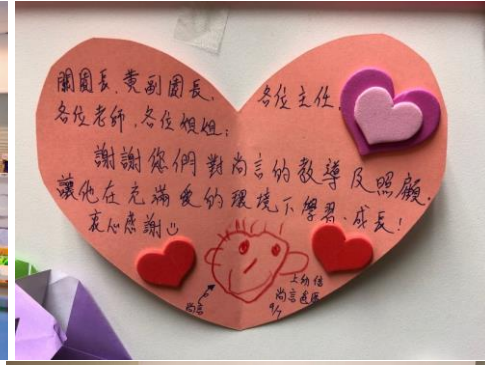 關園長，黃副園長，各位主任，
各位老師，各位姐姐：
謝謝您們對尚言的教導及照顧，
讓他在充滿愛的環境下學習、成長！
衷心感謝
尚言
上幼信
尚言
9/7